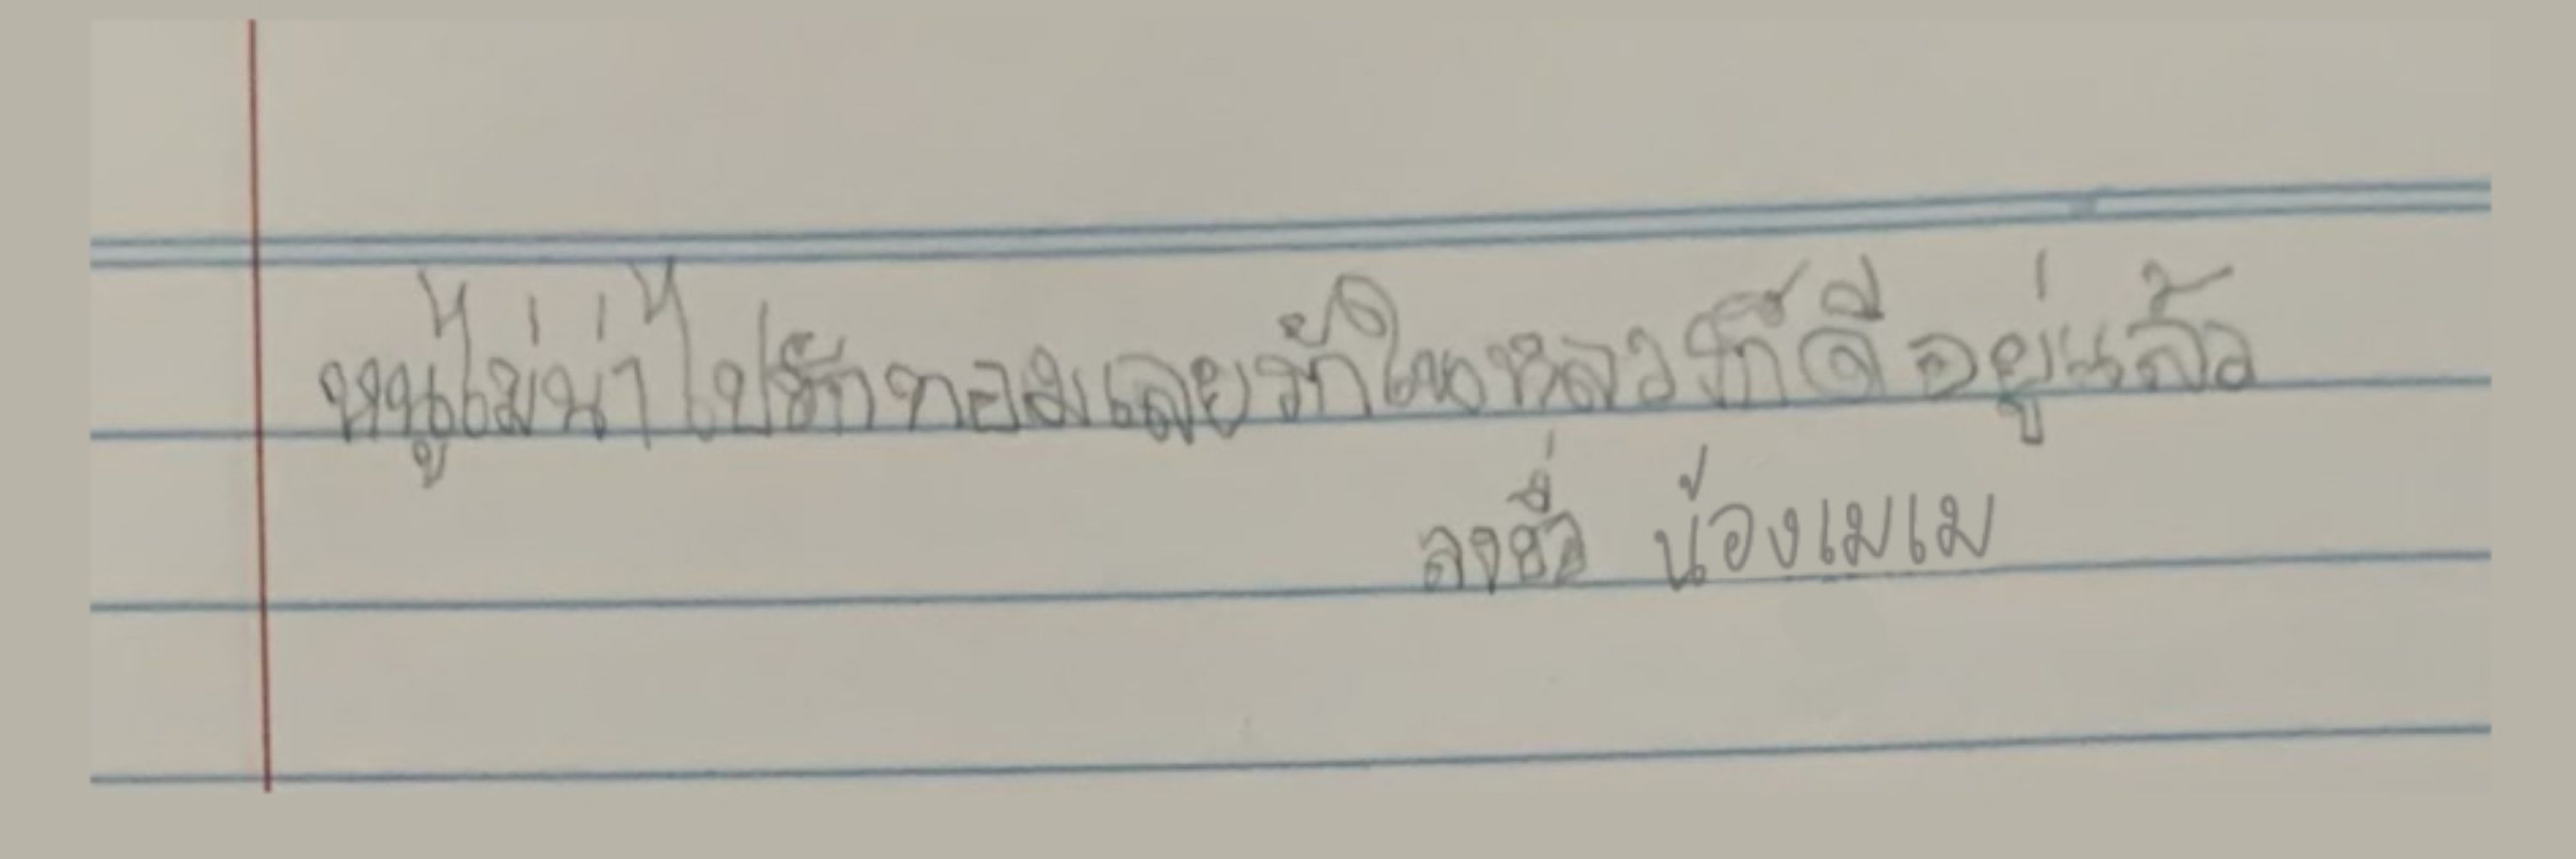 หนูไม่น่าไปรักทอมเลยรักในหลวงก็ดีอยู่แล้ว
ลงชื่อ น้องเมเม